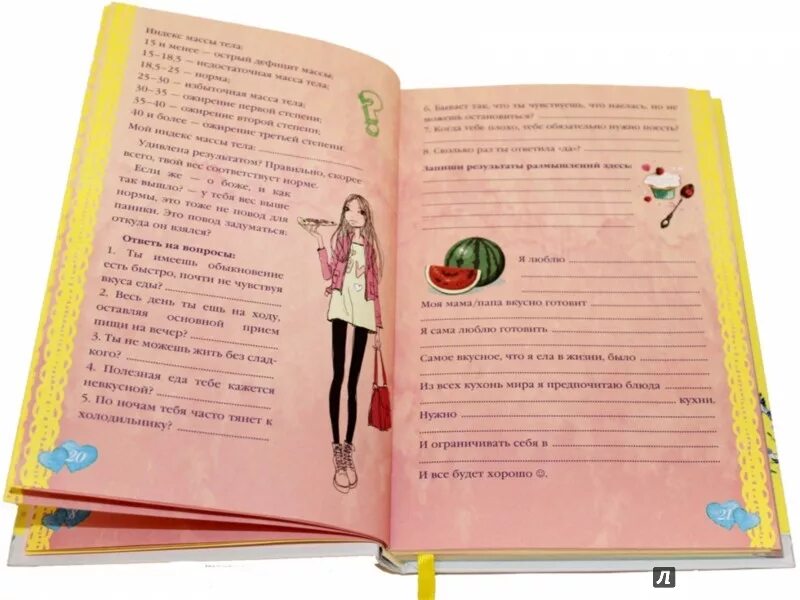 Индекс массы тела:
15 и менее — острый дефицит массы;
15–18,5 — недостаточная масса тела;
18,5–25 — норма;
25–30 — избыточная масса тела;
30–35 — ожирение первой степени;
35–40 — ожирение второй степени;
40 и более — ожирение третьей степени.
Мой индекс массы тела:
Удивлена результатом? Правильно, скорее
всего, твой вес соответствует норме.
Если же — о боже, и как
так вышло? — у тебя вес выше
нормы, это тоже не повод для
паники. Это повод задуматься:
откуда он взялся?
Ответь на вопросы:
1. Ты имеешь обыкновение
есть быстро, почти не чувствуя
вкуса еды?
2. Весь день ты ешь на ходу,
оставляя основной прием
пищи на вечер?
3. Ты не можешь жить без слад-
кого?
4. Полезная еда тебе кажется
невкусной?
5. По ночам тебя часто тянет к
холодильнику?
20
8
6. Бывает так, что ты чувствуешь, что наелась, но не
можешь остановиться?
7. Когда тебе плохо, тебе обязательно нужно поесть?
8. Сколько раз ты ответила «да»?
Запиши результаты размышлений здесь:
Я люблю
Моя мама/папа вкусно готовит
Я сама люблю готовить
Самое вкусное, что я ела в жизни, было
Из всех кухонь мира я предпочитаю блюда
кухни.
Нужно
И ограничивать себя в
И все будет хорошо ☺.
21
Л